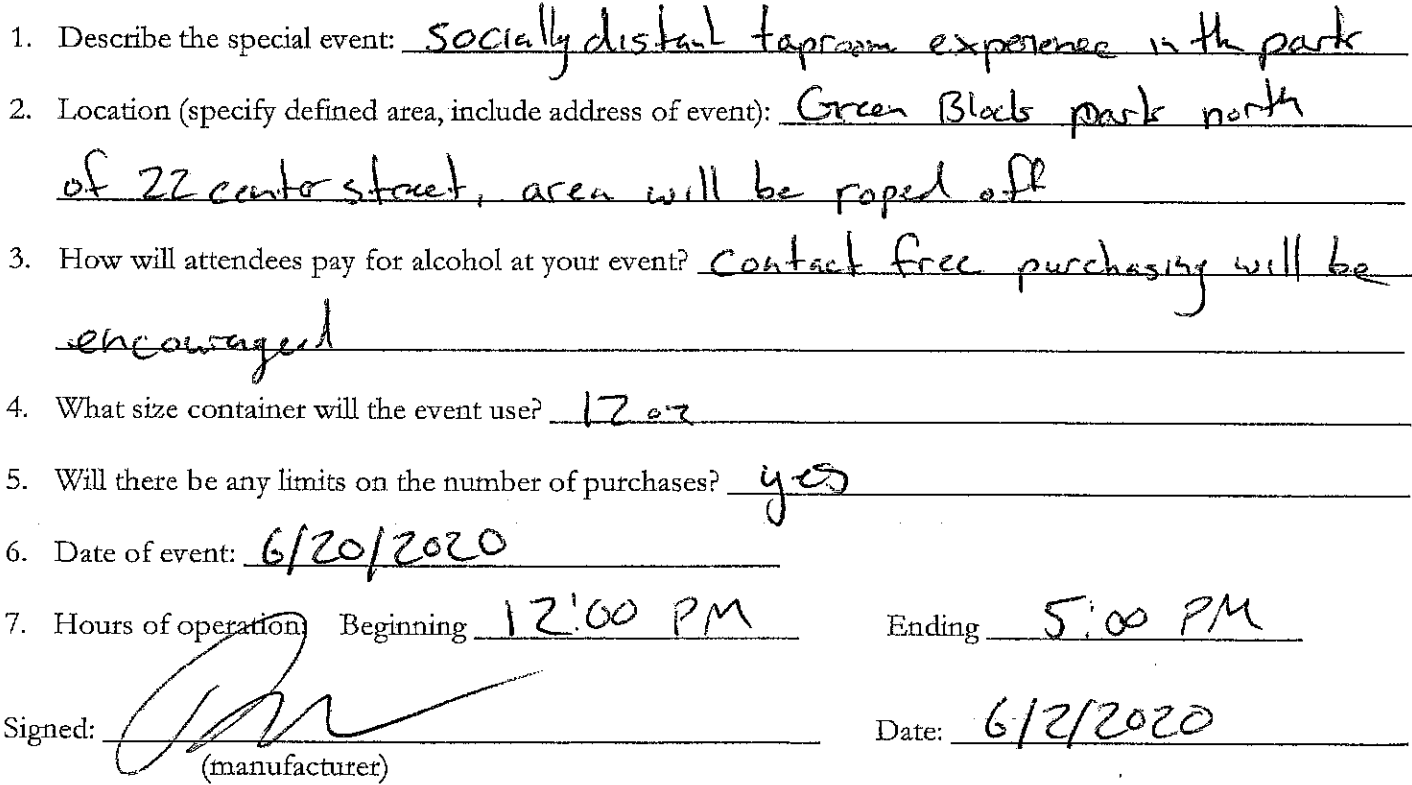 1. Describe the special event: Socially distant taproom experience in th park
2. Location (specify defined area, include address of event): Green Block park north
of 22 center street, area will be roped off
3. How will attendees pay for alcohol at your event? Contact free purchasing will be
encouraged
4. What size container will the event use? 12 oz
5. Will there be any limits on the number of purchases? yes
6. Date of event: 6/20/2020
7. Hours of operation Beginning 12:00 PM Ending 5:00 PM
Signed: Date: 6/2/2020
(manufacturer)